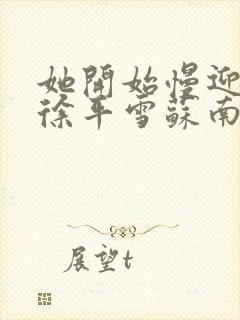 她開始慢迎
徐平雪蘇南
展望t